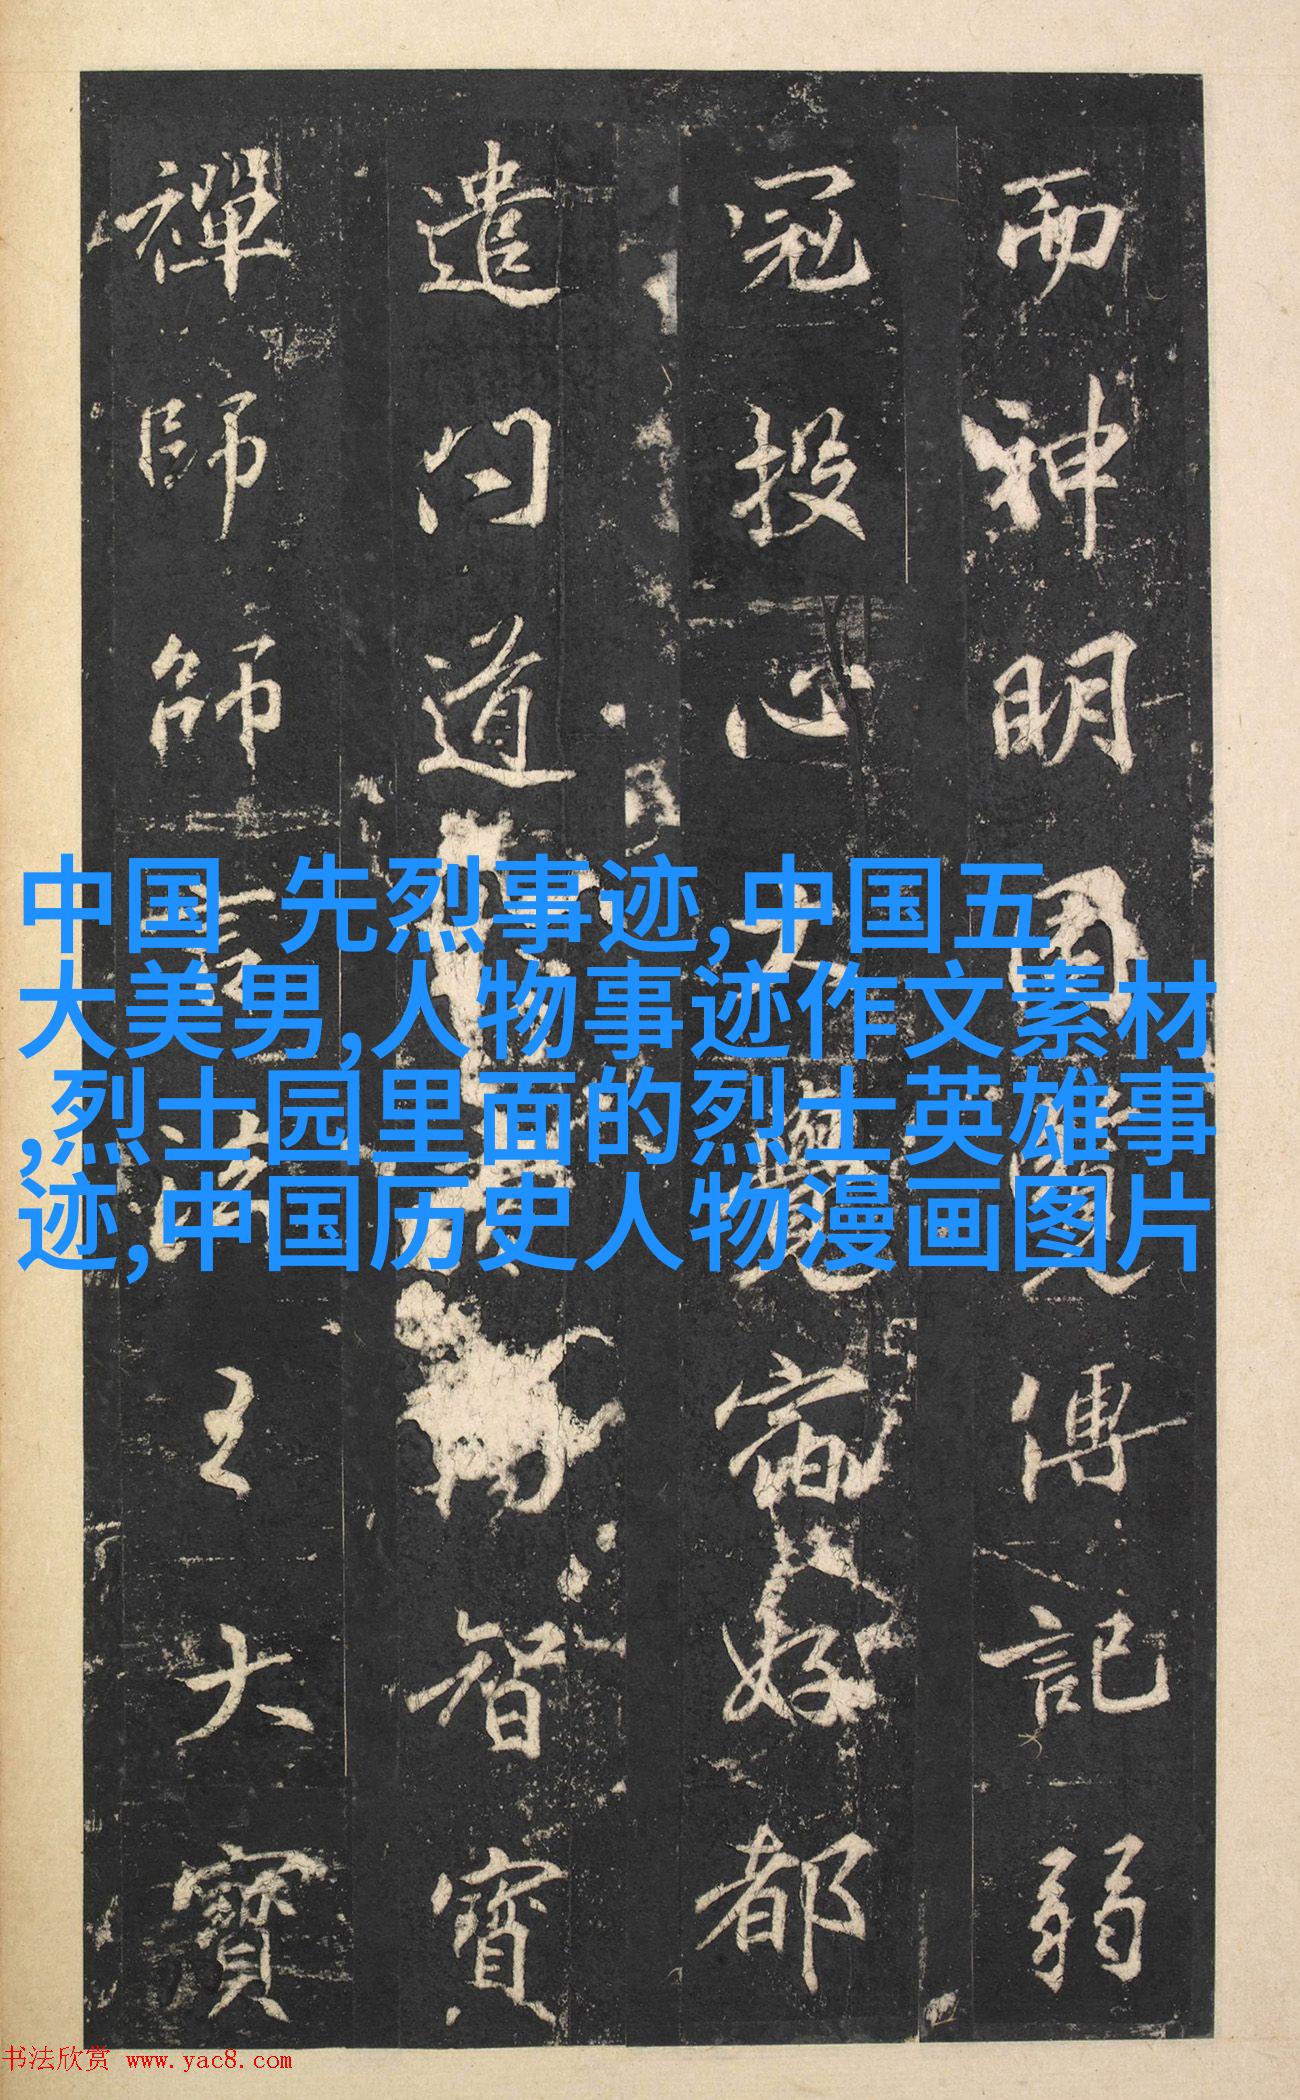 而神明因覽傳記弱
冠投心大覺宿好都
遣問道智寶
禪師師言法王大寶
中国 先烈事迹,中国五
大美男,人物事迹作文素材
,烈士园里面的烈士英雄事
迹,中国历史人物漫画图片
书法欣赏 www.yac8.com